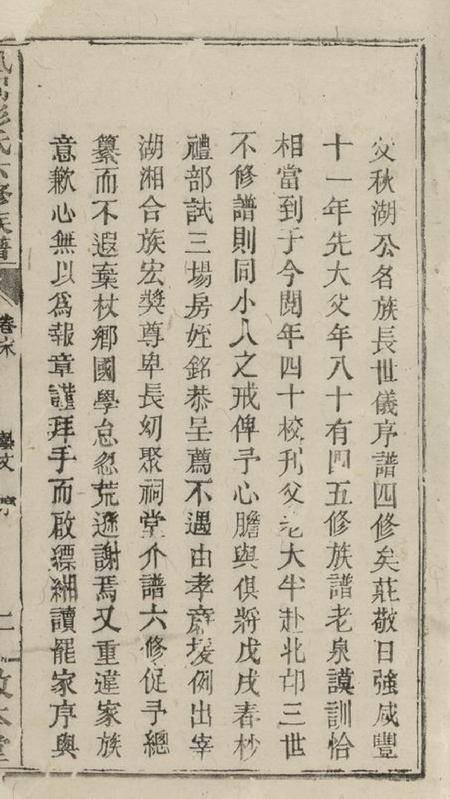 父秋湖公名族長世儀序譜四修矣莊敬日強咸豐
十一年先大父年八十有四五修族譜老泉謨訓恰
相當到于今閱年四十校刋父老大半赴北邙三世
不修譜則同小人之戒俾予心膽與俱將戊戌春杪
禮部試三場房姪銘恭呈薦不遇由孝廉援例出宰
湖湘合族宏奬尊卑長幼聚祠堂介譜六修促予總
纂而不遐棄杖鄉國學怠忽荒遜謝焉又重違家族
意歉心無以爲報章謹拜手而啟縹緗讀罷家序與
氏六修族譜
卷末
藝文 序
二
敦本堂